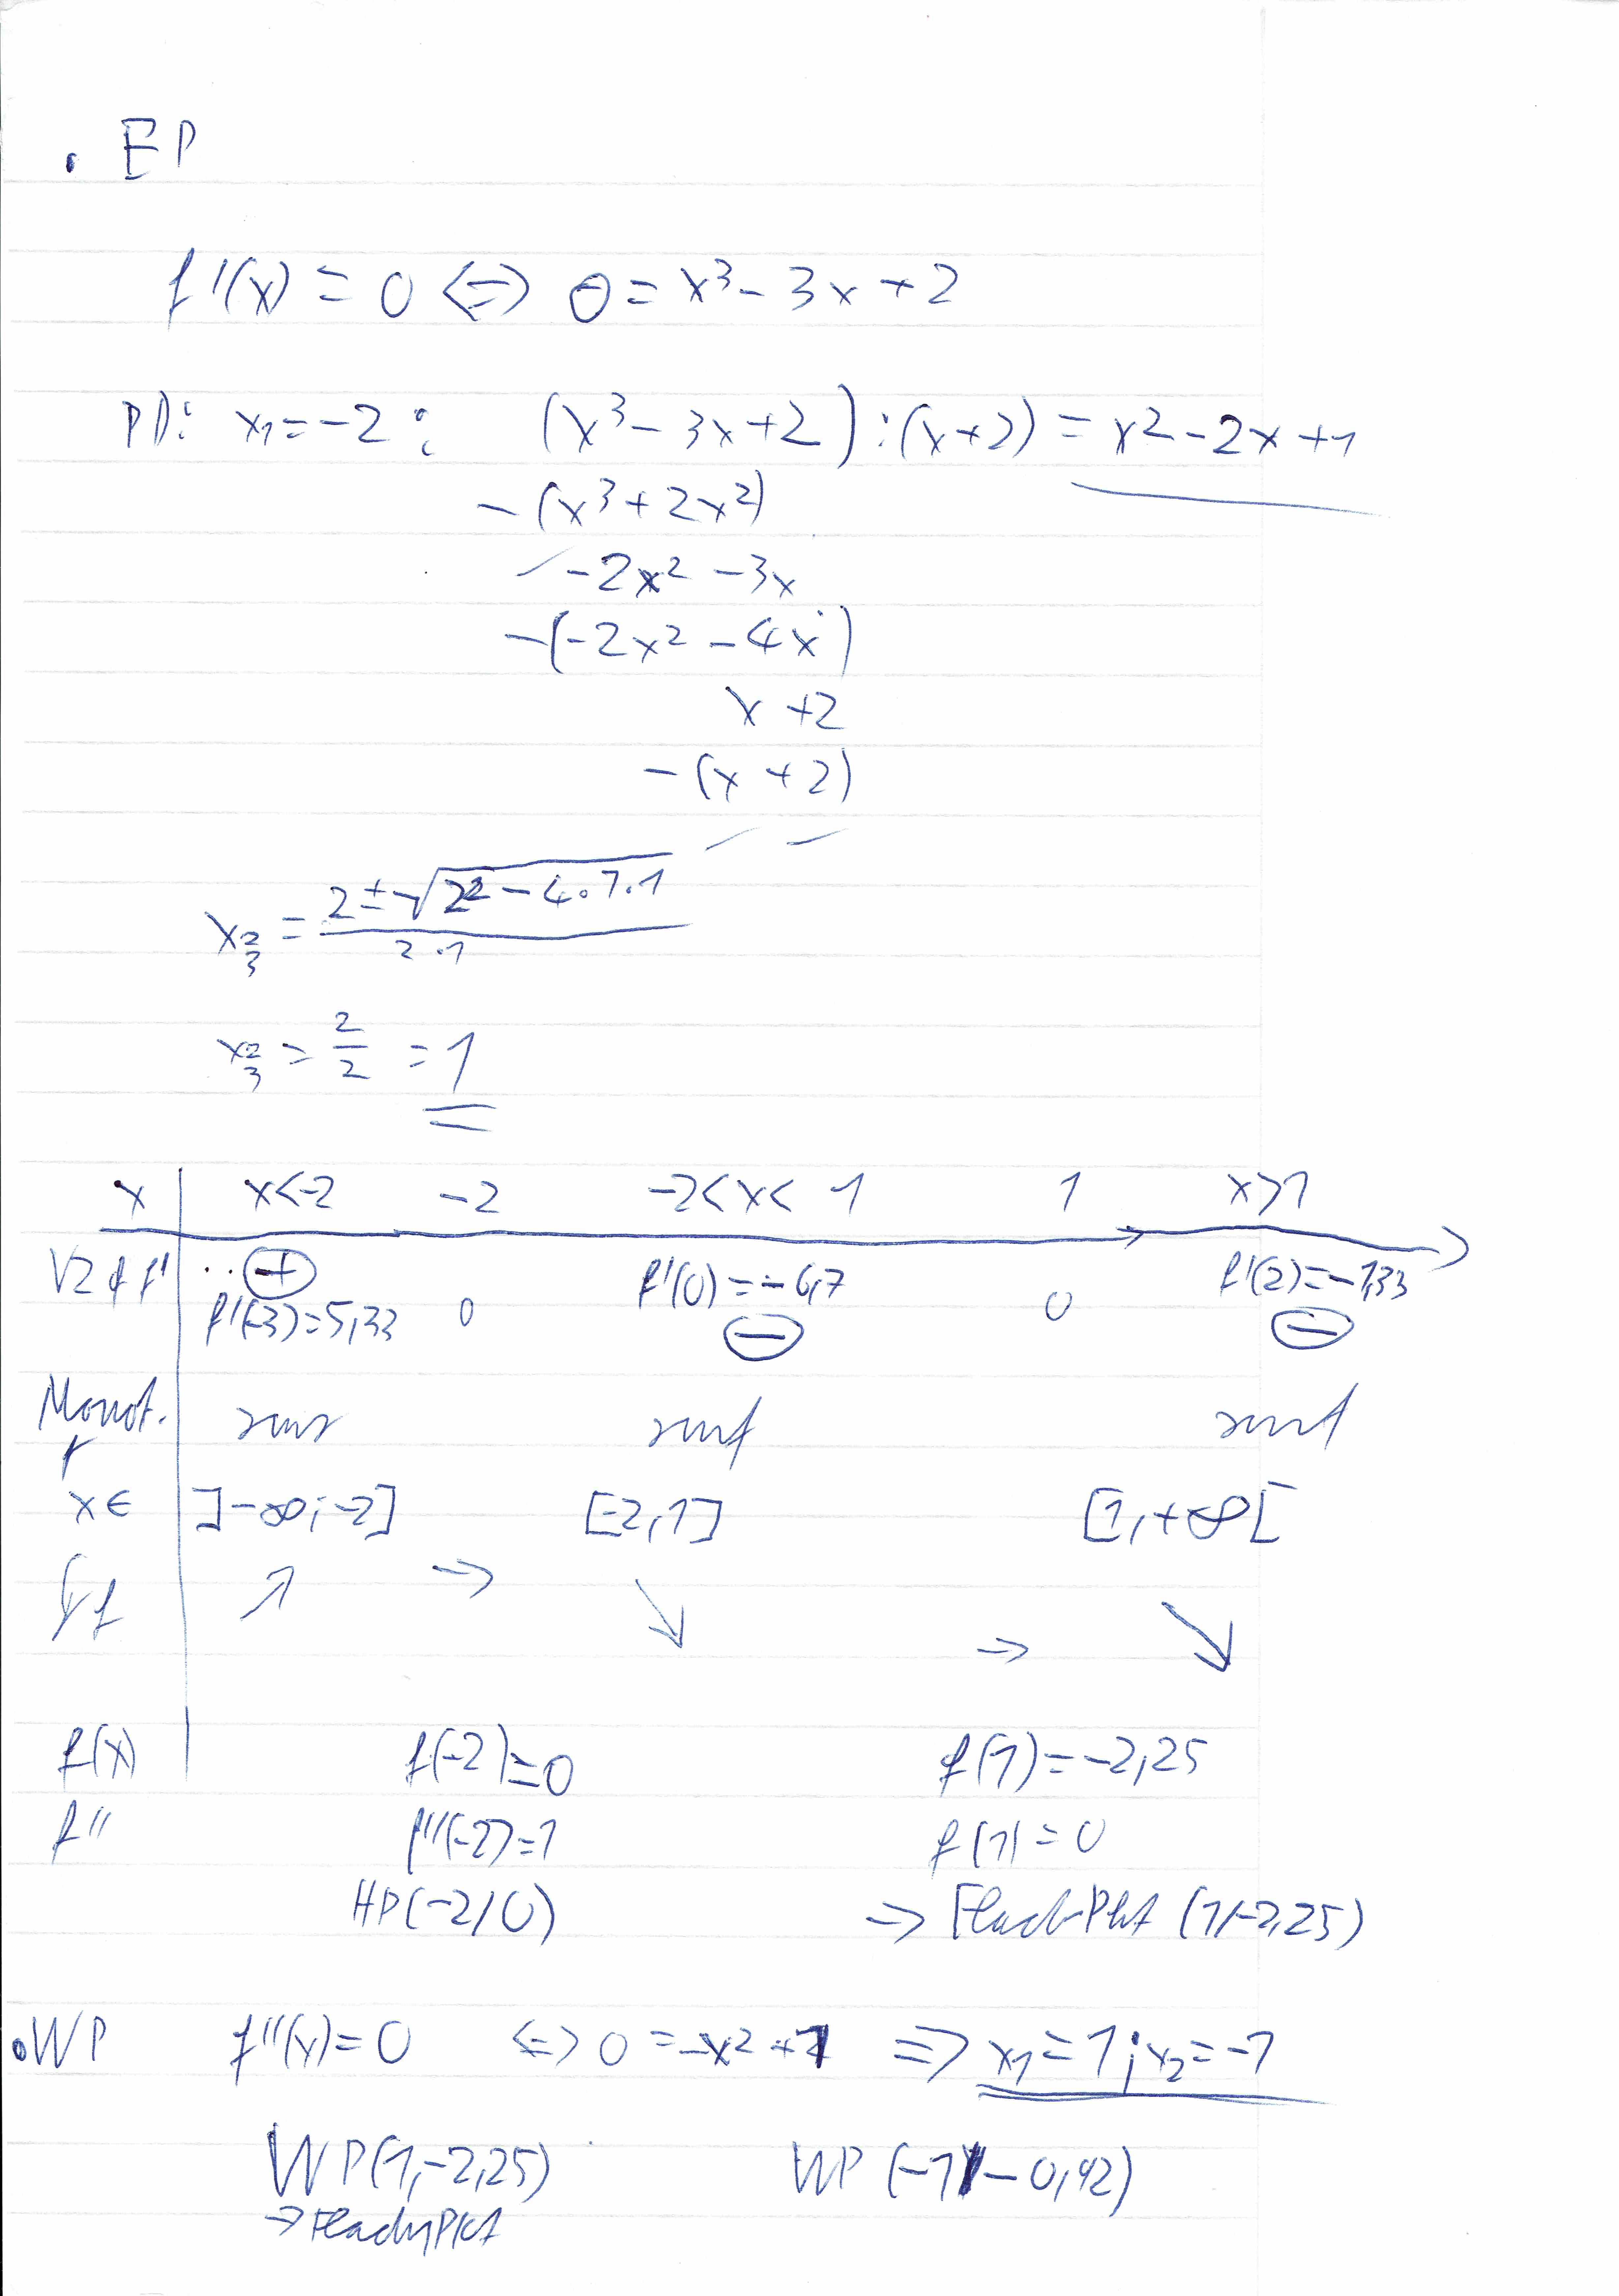 . EP
f'(x) = 0 <=> 0 = x³ - 3x + 2
PD: x₁ = -2 : (x³ - 3x + 2) : (x + 2) = x² - 2x + 1
- (x³ + 2x²)
-2x² - 3x
-(-2x² - 4x)
x + 2
- (x + 2)
x₂/₃ = (2 ± √(2² - 4·1·1)) / (2·1)
x₂/₃ = 2/2 = 1
x | x<-2 -2 -2<x<1 1 x>1
VZ d f' | ⊕ f'(0) = -6,7 f'(2) = -1,33
f'(-3) = 5,33 0 ⊖ 0 ⊖
Monot. f | sms smf smf
x ∈ | ]-∞; -2] [-2, 1] [1, +∞[
Gf | ↗ → ↘ → ↘
f(x) | f(-2) = 0 f(1) = -2,25
f'' f''(-2) = 1 f(1) = 0
HP(-2/0) => FlachPkt (1/-2,25)
. WP f''(x) = 0 <=> 0 = -x² + 1 => x₁ = 1; x₂ = -1
WP(1, -2,25) WP (-1/-0,92)
→ FlachPkt